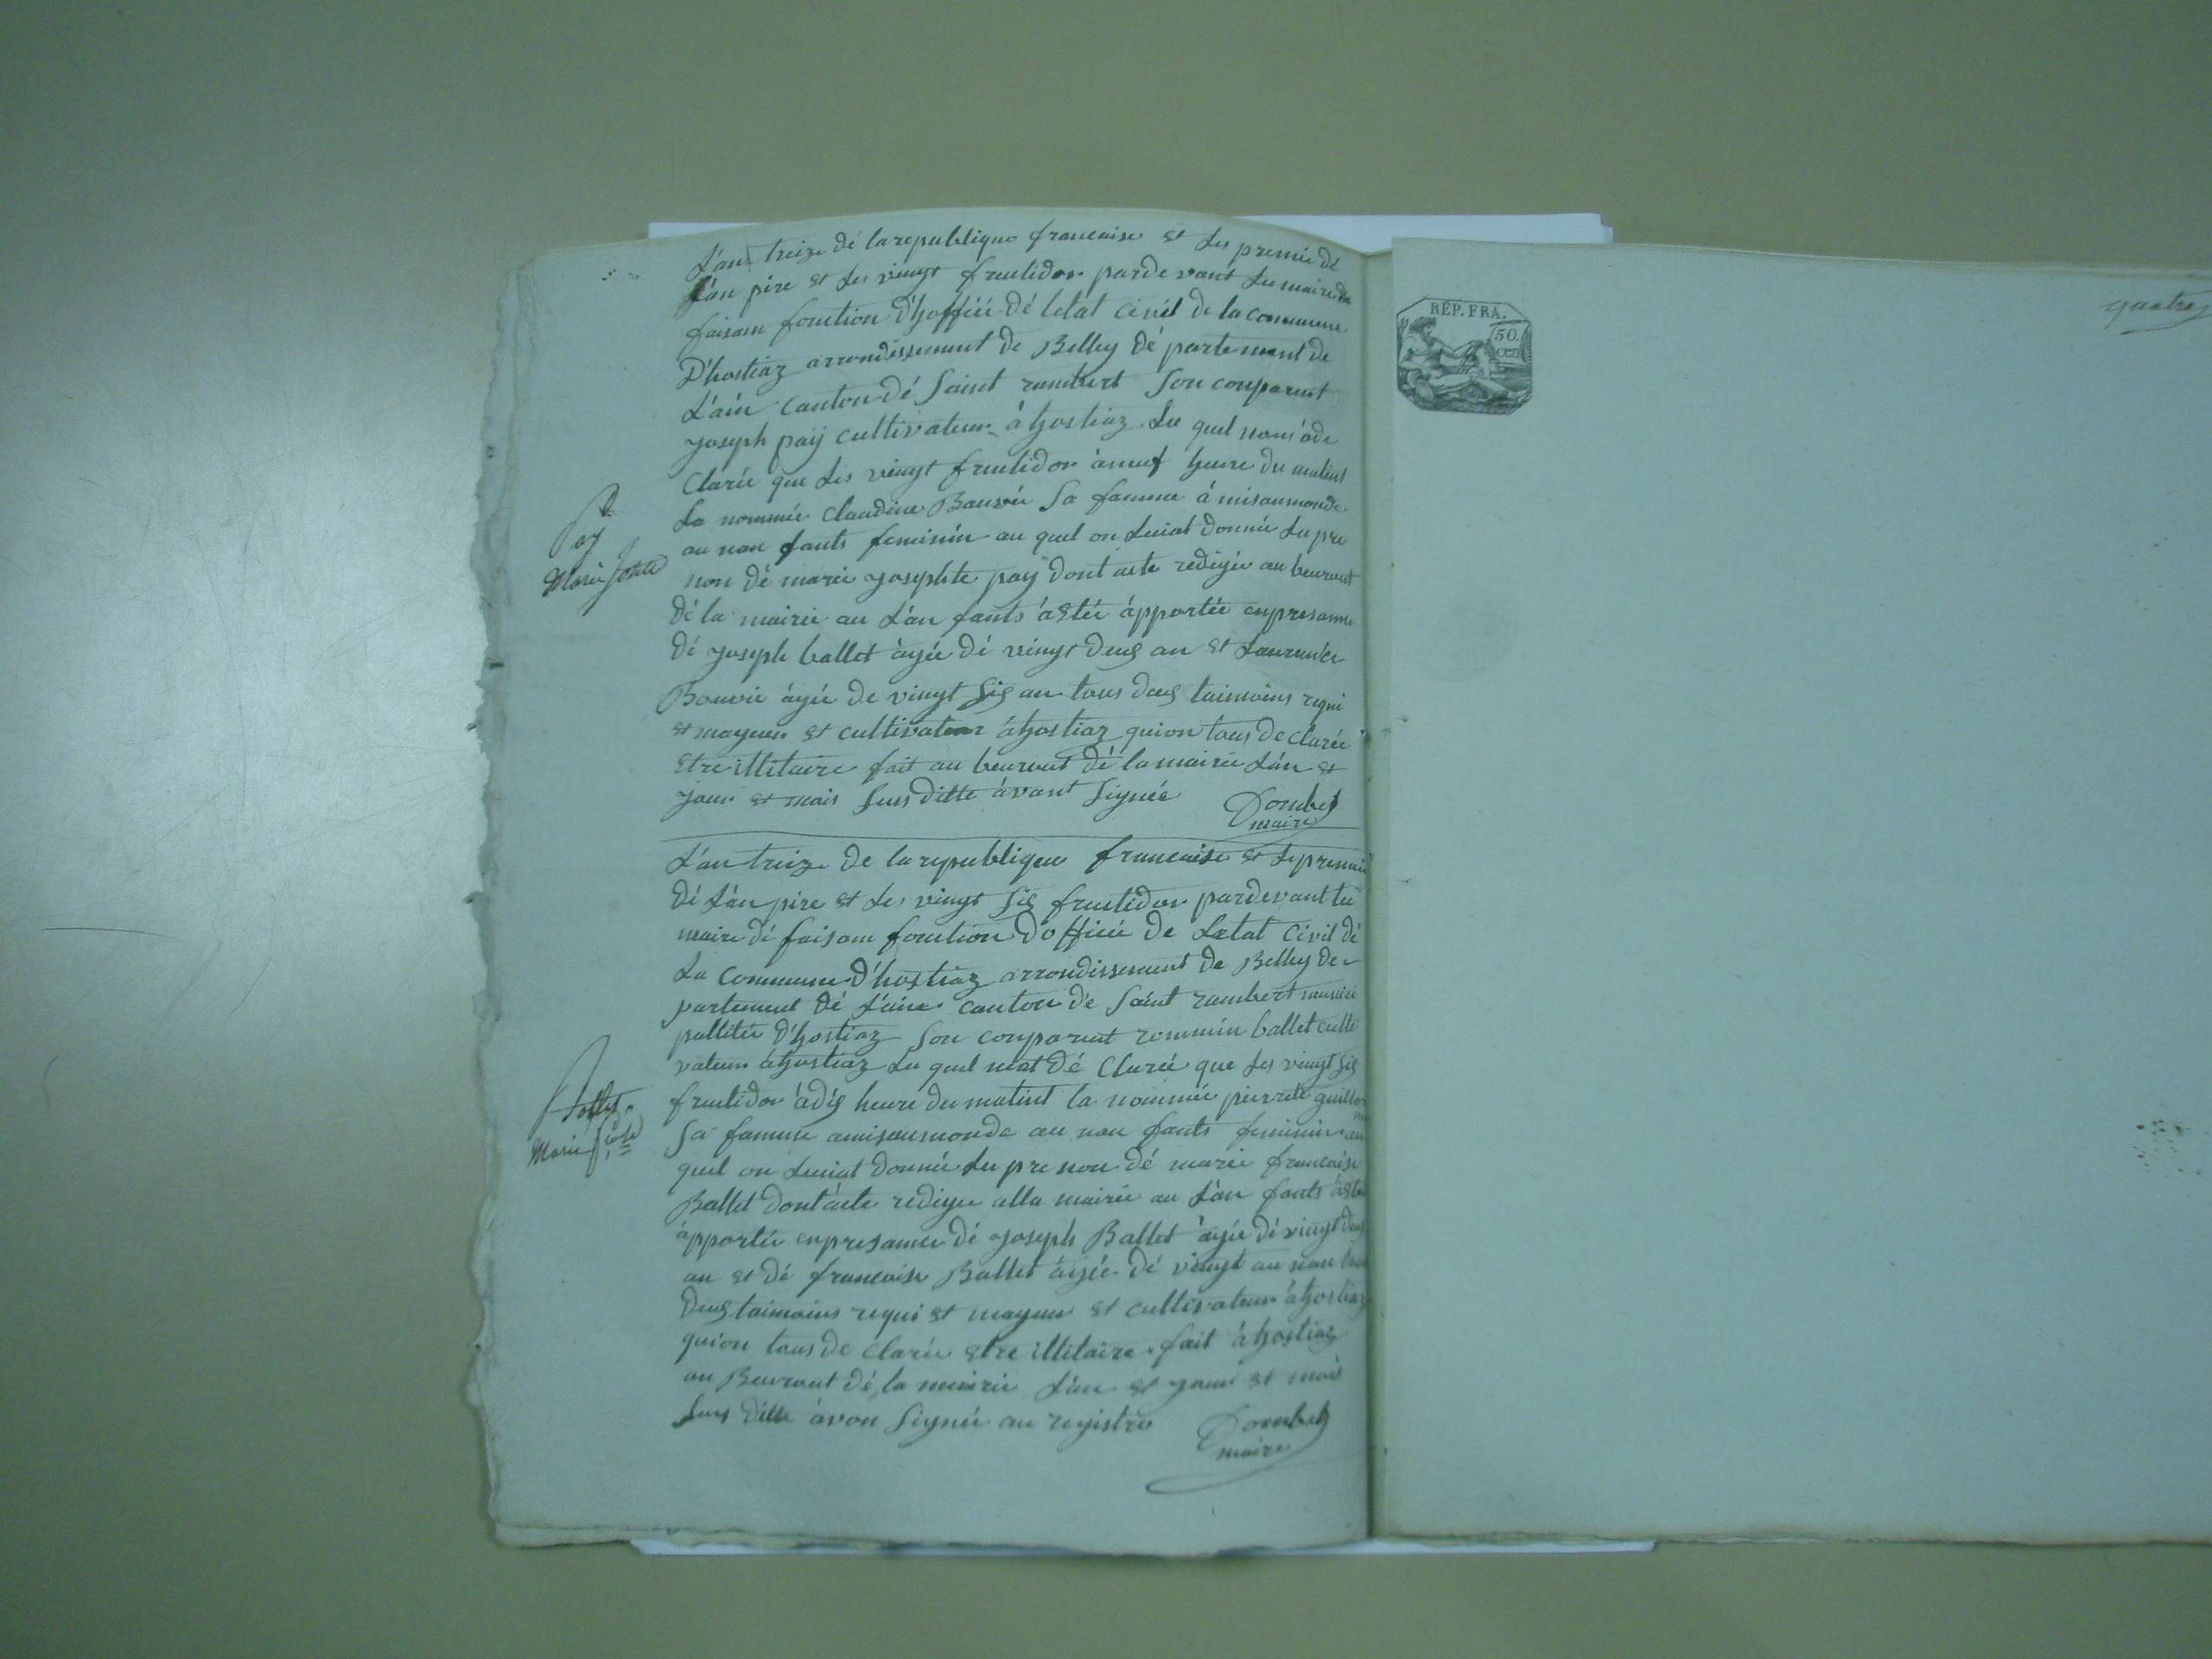 L'an treize dé la republique francaise et les premié dé
L'an pire et les vingt fructidor parde vant le maire de
faisam fonction d'hoffiié dé letat civil de la commune
D'hostiaz arrondissement de Belley dé partement de
L'ain canton dé Saint rambert Son conparut
joseph paÿ cultivateur à hostiaz Le quel nous à de
Clarée que les vingt fructidor à neuf heure du matint
La nommée claudine Sa famme à mis au monde
au nan fants feminin au quel on Luiat donnée Le pre
non dé marie josephte pay dont acte redigée au beuraut
dé la mairie au L'an fants à etée àpportée en presanse
Dé joseph ballet àgée dé vingt deus an et Lauranse
Bouvié àgée de vingt sis an tous deus taimoins requi
et mageur et cultivateur à hostiaz qui on tous de clarée
etre illitaire fait au beuraut dé la mairie L'an et
jour et mois Sus ditte àvant Signée
Dombet
maire
Pay
Marie Josete
L'an treize de la republique francaise et le premié
dé L'an pire et les vingt sis fructidor pardevant le
maire dé faisam fonction d'officié de Letat Civil dé
La Commune d'hostiaz arrondissement de Belley de
partement dé L'ain canton de Saint rambert munici
pallitée d'hostiaz Son conparut rommin ballet culti
vateur à hostiaz Le quel mat dé Clarée que les vingt sis
fructidor à dis heure du matint la nommée pierrete
Sa famme a mis au monde au nan fants feminin au
quel on Luiat donnée Le pre non dé marie francaise
Ballet dont acte redigée alla mairie au L'an fants à etée
àpportée en presance dé joseph Ballet àgée dé vingt deus
an et dé francaise Ballet àgée dé vingt au nan tous
deus taimoins requi et mageur et cultivateur à hostiaz
qui on tous de clarée etre illitaire fait à hostiaz
au Beuraut dé la mairie L'an et jour et mois
Sus ditte àvon Signée au registre
Dombet
maire
Ballet
Marie
RÉP. FRA.
50.
cen
quatre